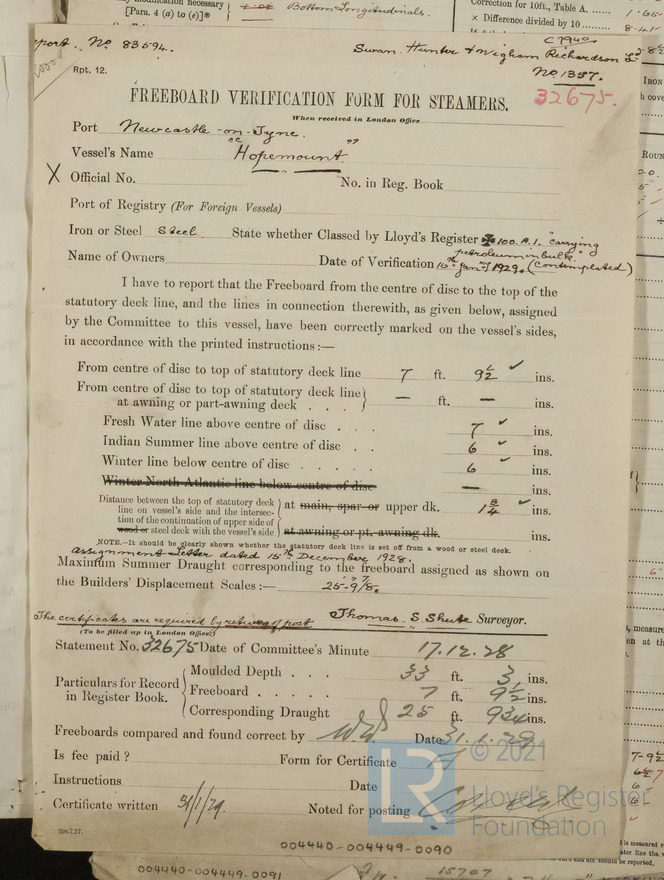 modification necessary
[Para. 4 (a to (e)]®
Bottom Longitudinals.
Correction for 10ft., Table A.
× Difference divided by 10
Report. No 83594.
C 7940
Swan. Hunter & Wigham Richardson Ld
No 1357.
Rpt. 12.
FREEBOARD VERIFICATION FORM FOR STEAMERS.
32675.
When received in London Office
Port Newcastle-on-Tyne.
Vessel's Name "Hopemount"
X Official No. No. in Reg. Book
Port of Registry (For Foreign Vessels)
Iron or Steel Steel State whether Classed by Lloyd's Register ✠ 100.A.1. "carrying
petroleum in bulk"
Name of Owners Date of Verification 16th Jany 1929. (Contemplated)
I have to report that the Freeboard from the centre of disc to the top of the
statutory deck line, and the lines in connection therewith, as given below, assigned
by the Committee to this vessel, have been correctly marked on the vessel's sides,
in accordance with the printed instructions:—
From centre of disc to top of statutory deck line 7 ft. 9½ ins.
From centre of disc to top of statutory deck line
at awning or part-awning deck . . . — ft. — ins.
Fresh Water line above centre of disc . . . 7 ins.
Indian Summer line above centre of disc . . 6 ins.
Winter line below centre of disc . . . . . 6 ins.
Winter North Atlantic line below centre of disc — ins.
Distance between the top of statutory deck
line on vessel's side and the intersec-
tion of the continuation of upper side of
wood or steel deck with the vessel's side
at main, spar or upper dk. ins.
at awning or pt.-awning dk. ins.
NOTE.—It should be clearly shown whether the statutory deck line is set off from a wood or steel deck.
Assignment Letter dated 15th December, 1928.
Maximum Summer Draught corresponding to the freeboard assigned as shown on
the Builders' Displacement Scales:— 25'-9 7/8".
The certificates are required by return of post
Thomas. S. Shute Surveyor.
(To be filled up in London Office.)
Statement No. 32675 Date of Committee's Minute 17.12.28
Particulars for Record
in Register Book.
Moulded Depth . . 33 ft. 3 ins.
Freeboard . . . . . 7 ft. 9½ ins.
Corresponding Draught 25 ft. 9¾ ins.
Freeboards compared and found correct by Date 31.1.29
Is fee paid? Form for Certificate
Instructions Date
Certificate written 31/1/29. Noted for posting
2m.7.27.
LR
© 2021
Lloyd's Register
Foundation
004440-004449-0090
004440-004449-0091
15707